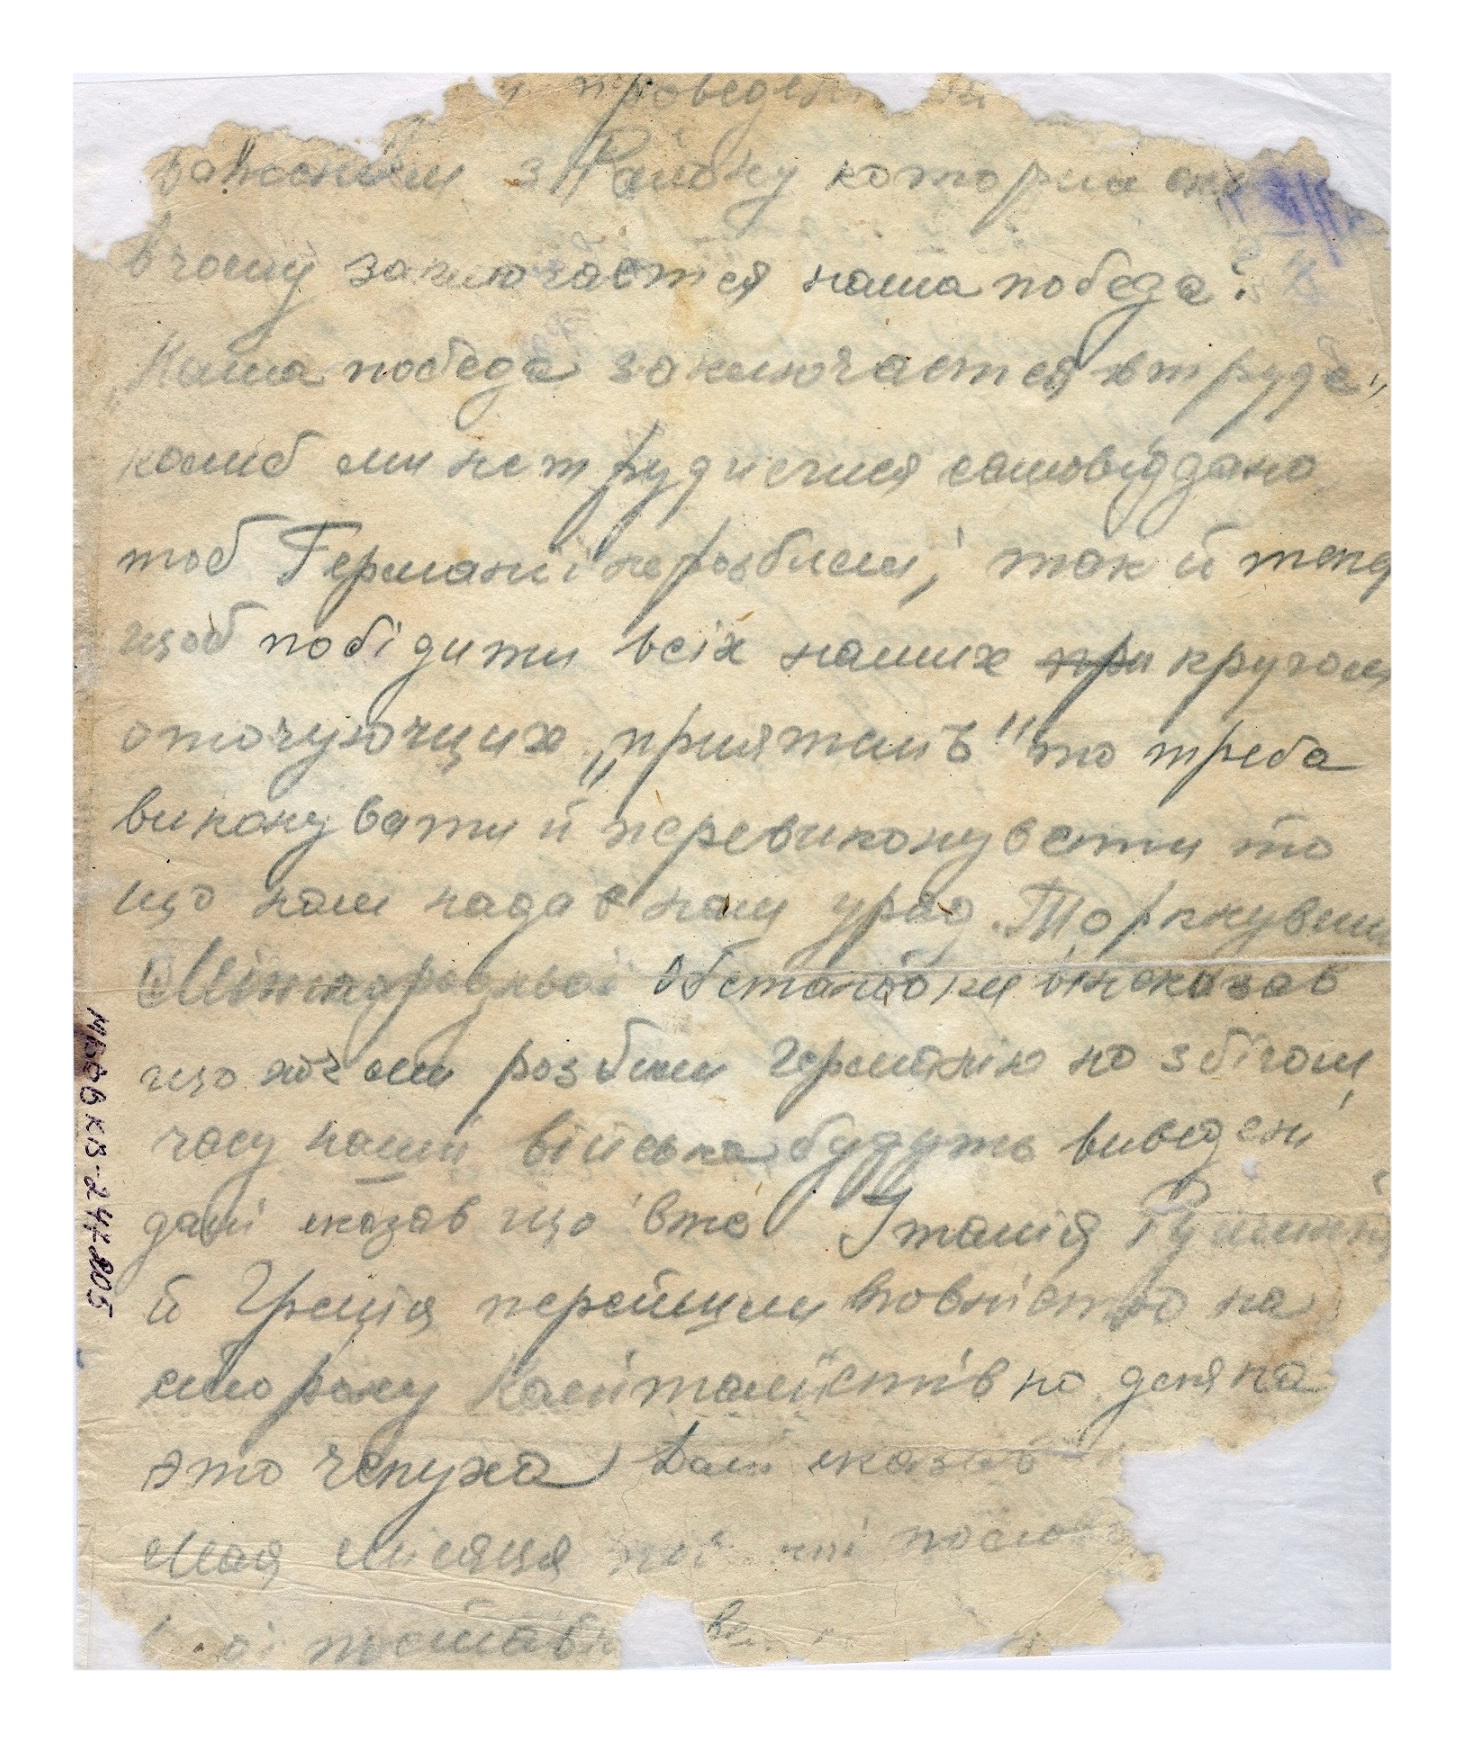 проведен
з Району котория
в чому заключается наша победа?
"Наша победа заключается в труде"
колиб ми нетрудилися самовіддано
тоб Германії неразбили, так й тепер
щоб побідити всіх наших при кругом
оточующих "приятель" то треба
виконувати й перевиконувати то
що нам надав наш уряд. Торкнувши
Міжнародньої Обстановки він сказав
що хоч ми розбили Германію но з бігом
часу наші війська будуть виведені
далі сказав що вже Італія Руминія
й Греція перейшли повністю на
сторону Капіталістів но для на
это чепуха) Далі сказав
Мая місяця
постав
МБОФ КВ-247205